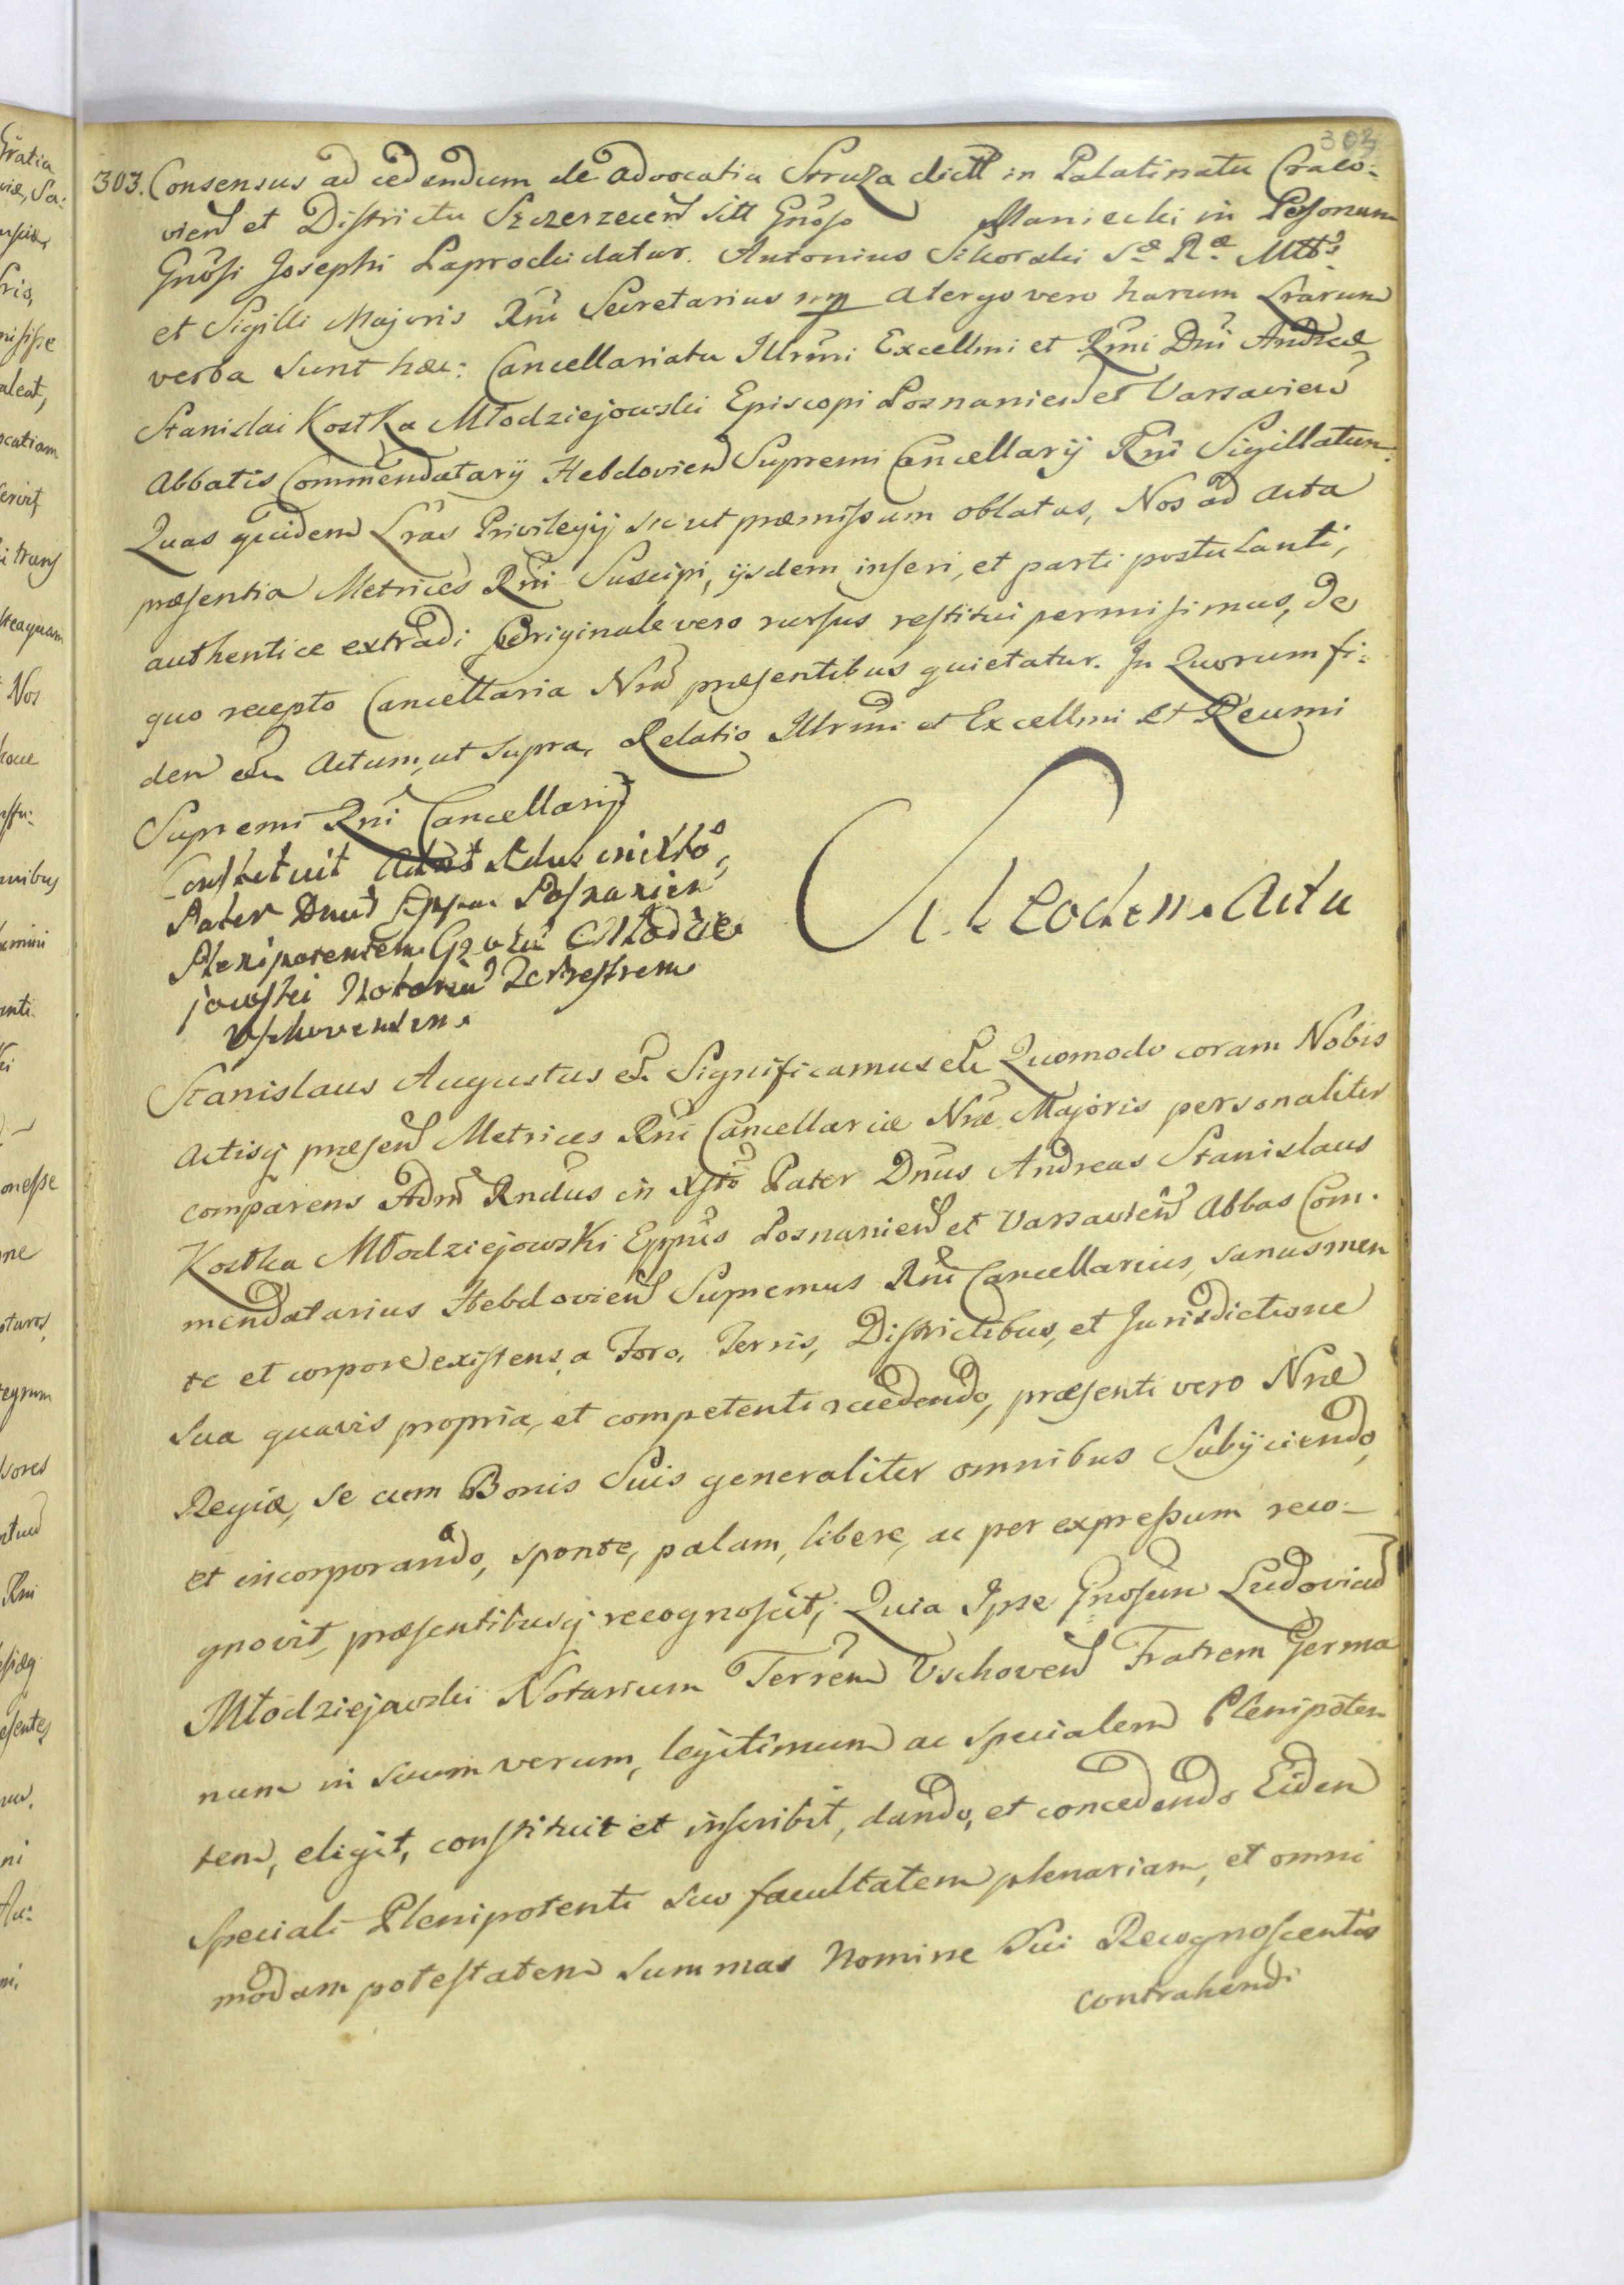 303
303. Consensus ad cedendum de advocatia Struza dictt in Palatinatu Craco:
vien et Districtu Szczerzecen sitt Gnoso Maniecki in Personam
Gnosi Josephi Paprocki datur. Antonius Sikorski Sæ Ræ Mttis
et Sigilli Majoris Rni Secretarius mp Atergo vero harum Lrarum
verba sunt hæc: Cancellariatu Illrmi Excellmi et Rmi Dni Andreæ
Stanislai Kostka Młodziejowski Episcopi Posnanien et Varsavien
Abbatis Commendatarij Hebdovien Supremi Cancellarij Rni Sigillatum.
Quas quidem Lras Privilegij sic ut præmissum oblatas, Nos ad Acta
præsentia Metrices Rni Suscipi, ijsdem inseri, et parti postulanti,
authentice extradi Originale vero rursus restitui permisimus, de
quo recepto Cancellaria Nra præsentibus quietatur. In Quorum fi:
dem etc Actum, ut supra. Relatio Illrmi et Excellmi et Reumi
Supremi Rni Cancellarij
Constituit Rdus in Xto
Pater Dnus Posnanien
Plenipotentem Młodzie
jowski Notariu Terrestrem
Vschovensem.
Eodem Actu
Stanislaus Augustus etc Significamus etc Quomodo coram Nobis
Actisq præsen Metrices Rni Cancellariæ Nræ Majoris personaliter
comparens Adm Rndus in Xsto Pater Dnus Andreas Stanislaus
Kostka Młodziejowski Eppus Posnanien et Varsavien Abbas Com.
mendatarius Hebdovien Supremus Rni Cancellarius, sanus men
te et corpore existens, a Foro, Terris, Districtibus, et Jurisdictione
sua quavis propria, et competenti recedendo, præsenti vero Nræ
Regiæ, se cum Bonis Suis generaliter omnibus Subijciendo,
et incorporando, sponte, palam, libere, ac per expressum reco:
gnovit, præsentibusq recognoscit; Quia Ipse Gnosum Ludovicum
Młodziejowski Notarium Terren Vschoven Fratrem Germa
num in suum verum, legitimum ac specialem Plenipoten
tem, eligit, constituit et inscribit, dando, et concedendo Eidem
Speciali Plenipotenti suo facultatem plenariam, et omni
modam potestatem summas Nomine Sui Recognoscentis
contrahendi